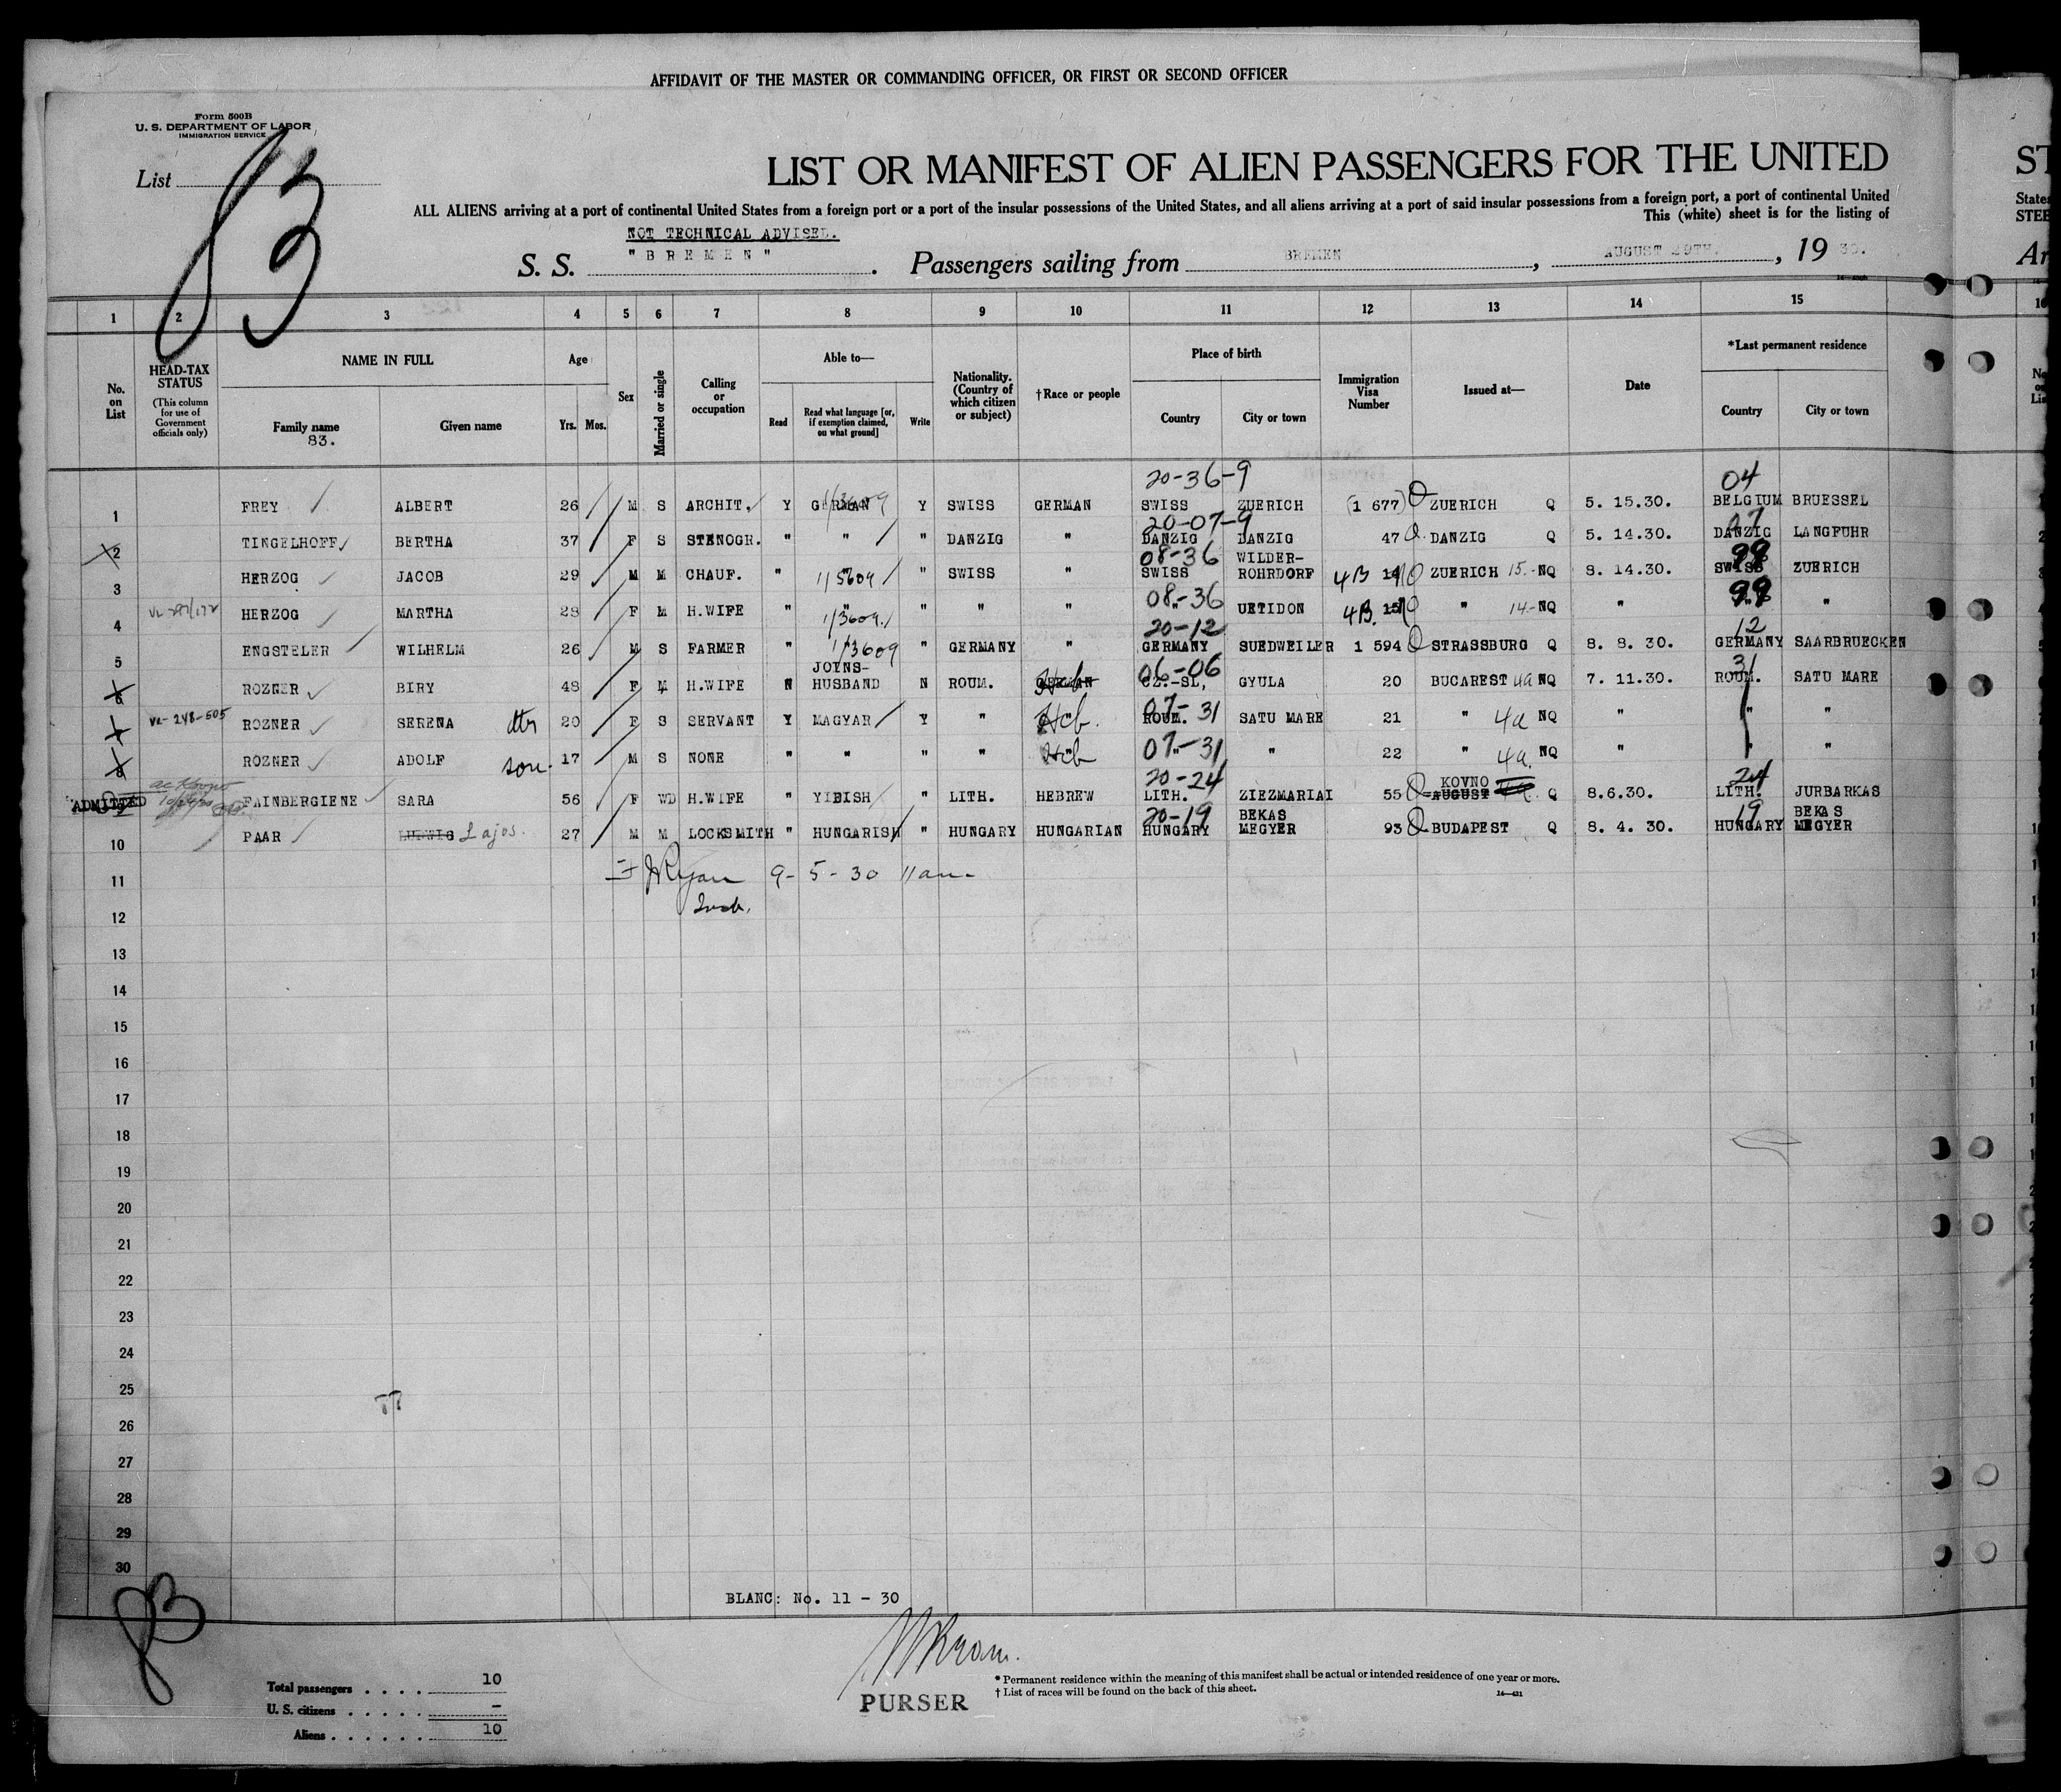 AFFIDAVIT OF THE MASTER OR COMMANDING OFFICER, OR FIRST OR SECOND OFFICER
Form 500B
U. S. DEPARTMENT OF LABOR
IMMIGRATION SERVICE
List
83
LIST OR MANIFEST OF ALIEN PASSENGERS FOR THE UNITED
ST
ALL ALIENS arriving at a port of continental United States from a foreign port or a port of the insular possessions of the United States, and all aliens arriving at a port of said insular possessions from a foreign port, a port of continental United
States
This (white) sheet is for the listing of
STEE
NOT TECHNICAL ADVISED.
S. S. "BREMEN". Passengers sailing from BREMEN, AUGUST 29TH., 19 30.
Ar
1 2 3 4 5 6 7 8 9 10 11 12 13 14 15
No. on List
HEAD-TAX STATUS
(This column for use of Government officials only)
NAME IN FULL
Family name
83.
Given name
Age
Yrs. Mos.
Sex
Married or single
Calling or occupation
Able to—
Read
Read what language [or, if exemption claimed, on what ground]
Write
Nationality. (Country of which citizen or subject)
†Race or people
Place of birth
Country
City or town
Immigration Visa Number
Issued at—
Date
*Last permanent residence
Country
City or town
20-36-9 04
1 FREY ALBERT 26 M S ARCHIT. Y GERMAN Y SWISS GERMAN SWISS ZUERICH (1 677) ZUERICH Q 5. 15.30. BELGIUM BRUESSEL
20-07-9 07
2 TINGELHOFF BERTHA 37 F S STENOGR. " " " DANZIG " DANZIG DANZIG 47 DANZIG Q 5. 14.30. DANZIG LANGFUHR
08-36 99
3 HERZOG JACOB 29 M M CHAUF. " " " SWISS " SWISS WILDER-
ROHRDORF 4B 14 ZUERICH 15.- NQ 8. 14.30. SWISS ZUERICH
08-36 99
4 HERZOG MARTHA 28 F M H.WIFE " " " " " " UETIDON 4B. 15 " 14- NQ " " "
20-12 12
5 ENGSTELER WILHELM 26 M S FARMER " 1/3609 " GERMANY " GERMANY SUEDWEILER 1 594 STRASSBURG Q 8. 8. 30. GERMANY SAARBRUECKEN
06-06 31
6 ROZNER BIRY 48 F M H.WIFE N JOINS-
HUSBAND N ROUM. GERMAN Heb CZ.-SL, GYULA 20 BUCAREST 4a NQ 7. 11.30. ROUM. SATU MARE
07-31
VL-248-505 ROZNER SERENA dtr 20 F S SERVANT Y MAGYAR Y " Heb. ROUM. SATU MARE 21 " 4a NQ " " "
07-31
8 ROZNER ADOLF son. 17 M S NONE " " " " Heb " " 22 " 4a. NQ " " "
20-24 24
ADMITTED FAINBERGIENE SARA 56 F WD H.WIFE " YIDISH " LITH. HEBREW LITH. ZIEZMARIAI 55 KOVNO
AUGUST Q 8.6.30. LITH. JURBARKAS
20-19 19
10 PAAR LUDWIG Lajos. 27 M M LOCKSMITH " HUNGARISH " HUNGARY HUNGARIAN HUNGARY BEKAS
MEGYER 93 BUDAPEST Q 8. 4. 30. HUNGARY BEKAS
MEGYER
11 Ryan 9-5-30 11am
12
13
14
15
16
17
18
19
20
21
22
23
24
25
26
27
28
29
30
BLANC: No. 11 - 30
83
Total passengers . . . . 10
U. S. citizens . . . . . –
Aliens . . . . . . 10
PURSER
* Permanent residence within the meaning of this manifest shall be actual or intended residence of one year or more.
† List of races will be found on the back of this sheet.